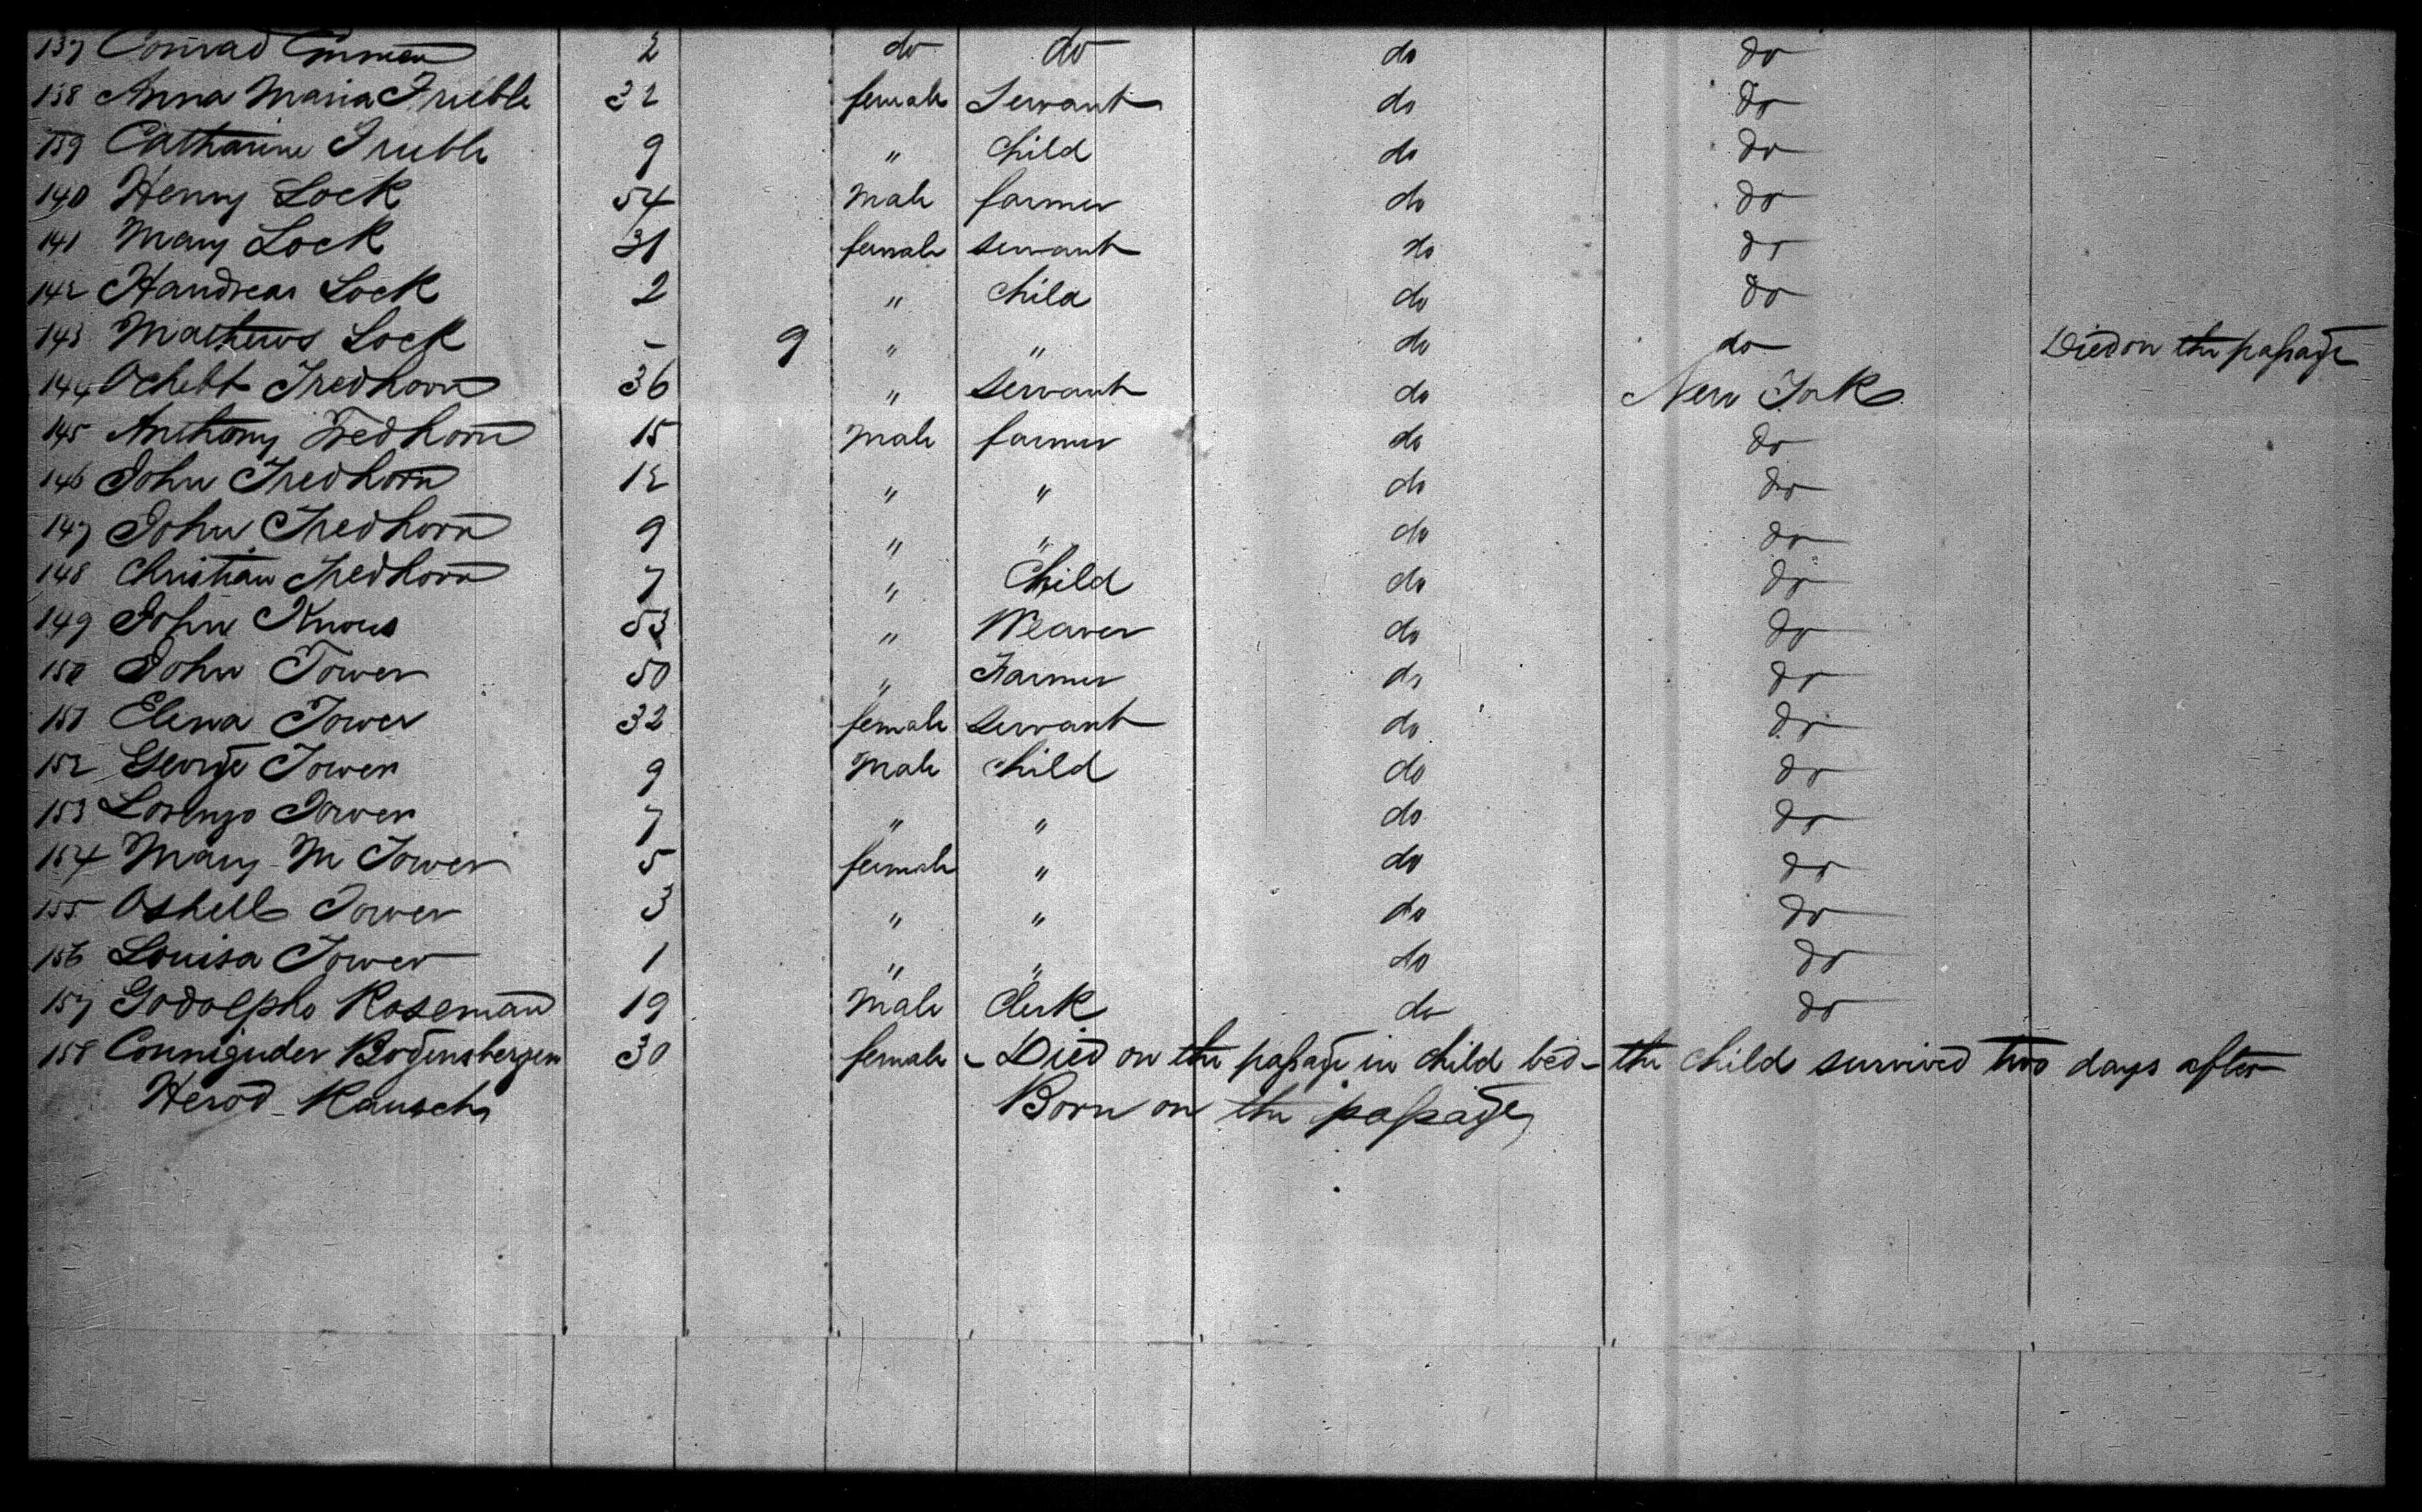 137 Conrad Emmen 2 do do do do
138 Anna Maria Frieble 32 female Servant do do
139 Catharine Frieble 9 " Child do do
140 Henry Lock 54 Male farmer do do
141 Mary Lock 31 female servant do do
142 Handreas Lock 2 " Child do do
143 Mathews Lock - 9 " " do do Died on the passage
144 Ochebt Fredhorn 36 " Servant do New York
145 Anthony Fredhorn 15 Male farmer do do
146 John Fredhorn 12 " " do do
147 John Fredhorn 9 " " do do
148 Christian Fredhorn 7 " Child do do
149 John Knous 53 " Weaver do do
150 John Tower 50 " Farmer do do
151 Elena Tower 32 female Servant do do
152 George Tower 9 Male Child do do
153 Lorenzo Tower 7 " " do do
154 Mary M Tower 5 female " do do
155 Oshell Tower 3 " " do do
156 Louisa Tower 1 " " do do
157 Godolpho Roseman 19 Male Clerk do do
158 Conniguder Bogensbergen 30 female - Died on the passage in Child bed - the Child survived two days after
Herod Rausch Born on the passage